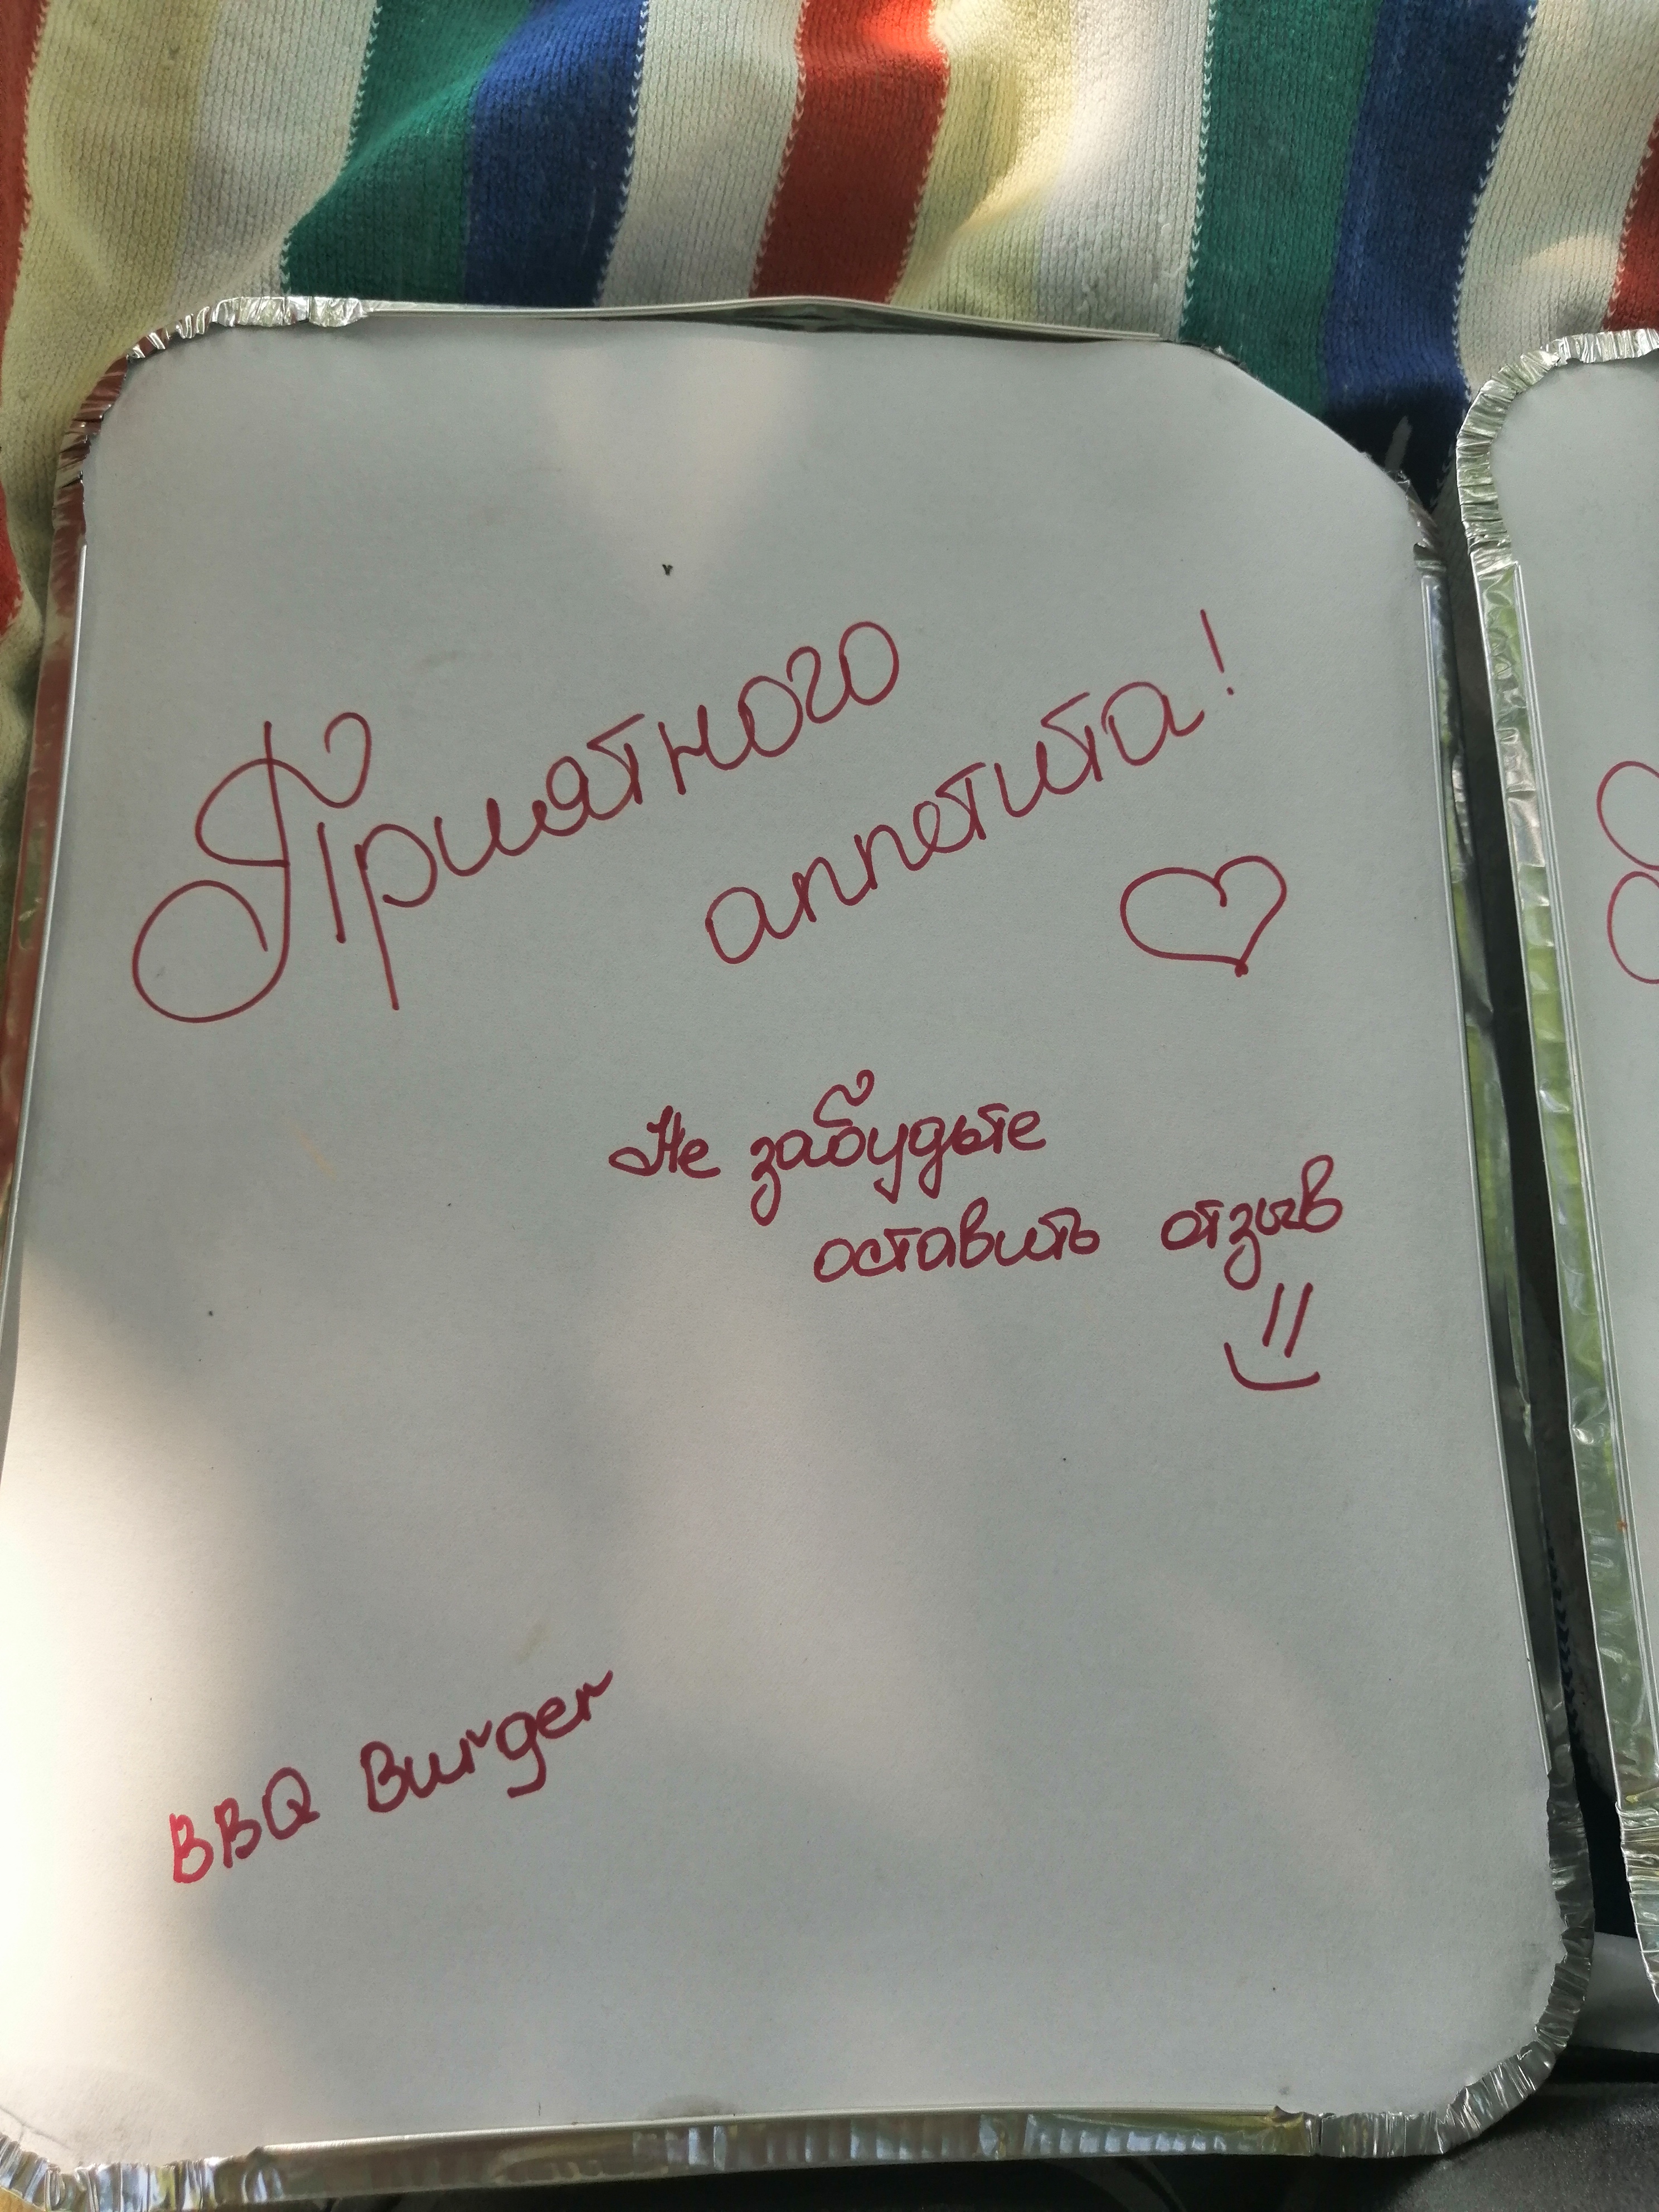 Приятного
аппетита!
Не забудьте
оставить отзыв
BBQ Burger